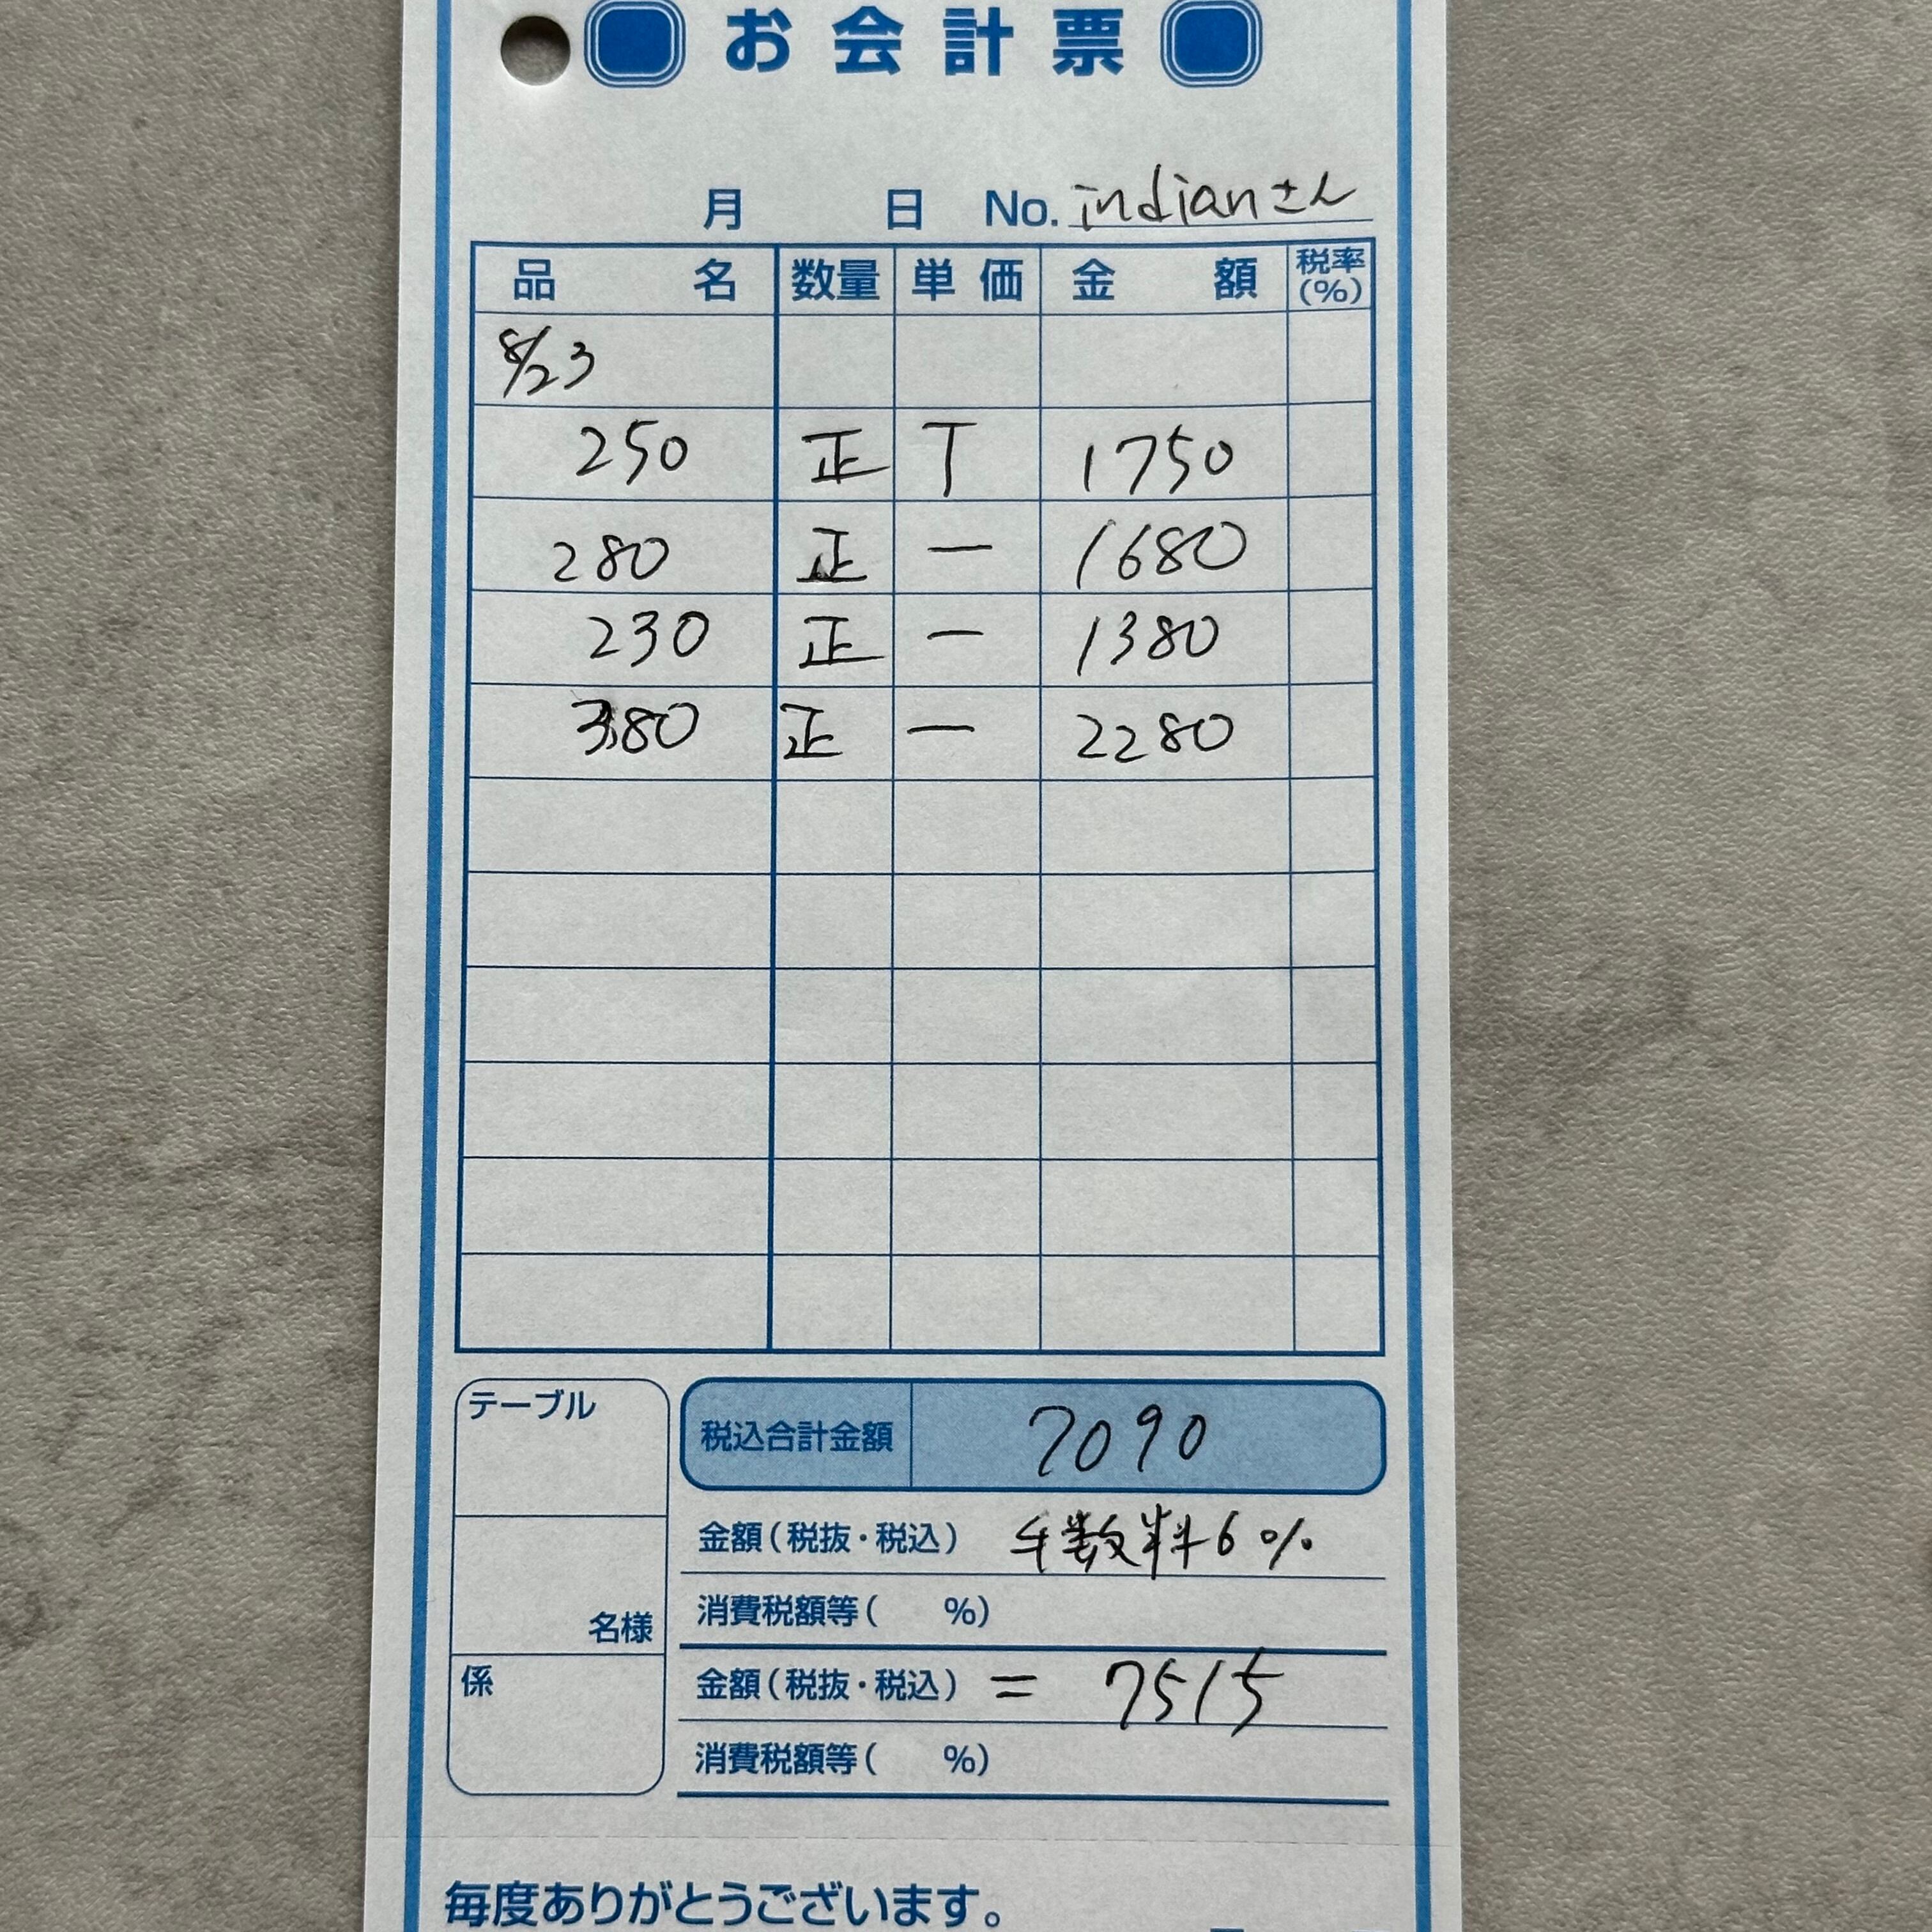 お会計票
月 日 No. indianさん
品名 数量 単価 金額 税率(%)
8/23
250 正 T 1750
280 正 一 1680
230 正 一 1380
380 正 一 2280
テーブル
税込合計金額 7090
金額(税抜・税込) 手数料6%
消費税額等( %)
名様
係
金額(税抜・税込) = 7515
消費税額等( %)
毎度ありがとうございます。